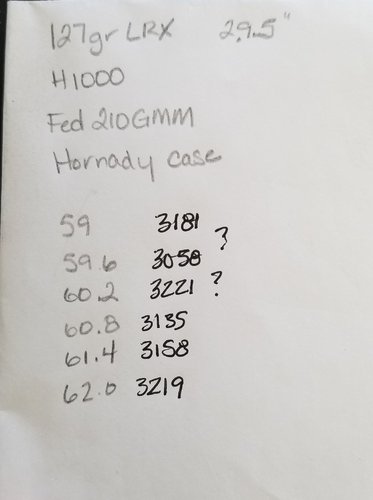 127gr LRX 29.5"
H1000
Fed 210GMM
Hornady case
59 3181
?
59.6 3058
60.2 3221 ?
60.8 3135
61.4 3158
62.0 3219